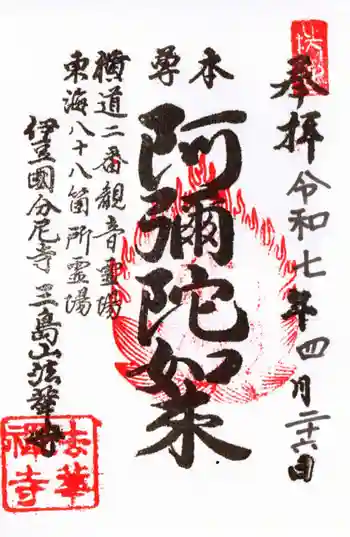 奉拝 令和七年四月二十六日
本尊
阿彌陀如来
横道二番観音霊場
東海八十八箇所霊場
伊豆國分尼寺 三島山法華寺
法華禅寺